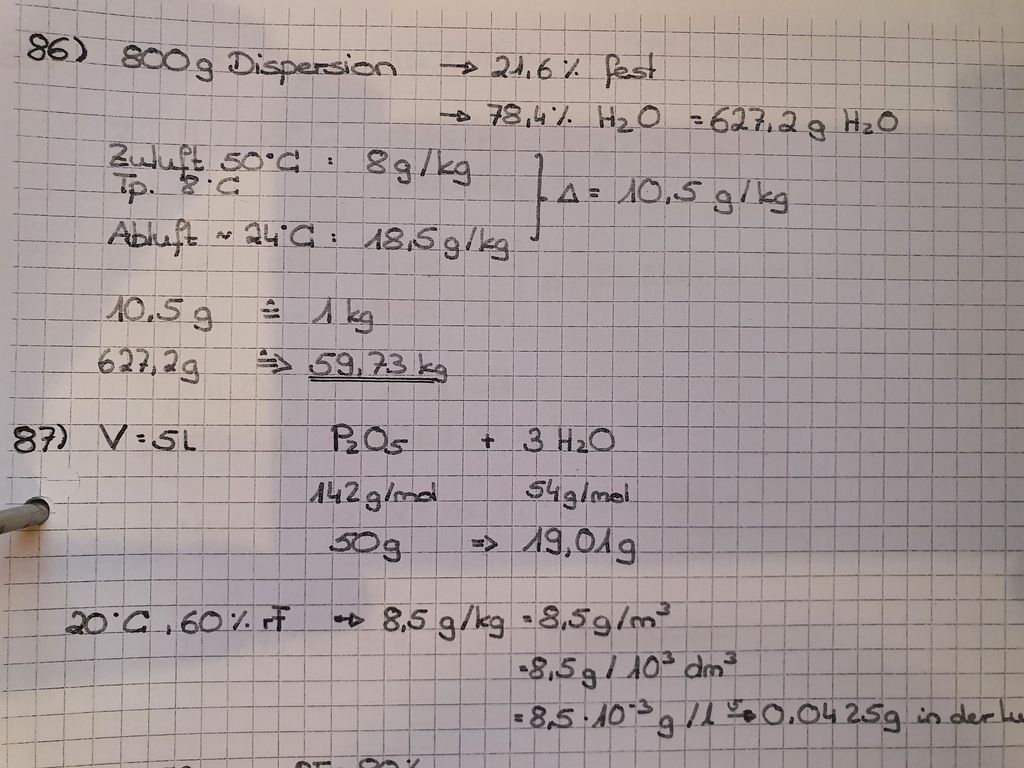 86) 800g Dispersion → 21,6% fest
→ 78,4% H2O = 627,2g H2O
Zuluft 50°C : 8g/kg
Tp. 8°C
Δ = 10,5 g/kg
Abluft ~ 24°C : 18,5g/kg
10,5g ≙ 1kg
627,2g ≙> 59,73 kg
87) V = 5L P2O5 + 3 H2O
142g/mol 54g/mol
50g => 19,01g
20°C, 60% rF → 8,5 g/kg = 8,5g/m³
= 8,5g / 10³ dm³
= 8,5 · 10⁻³ g /l → 0,0425g in der